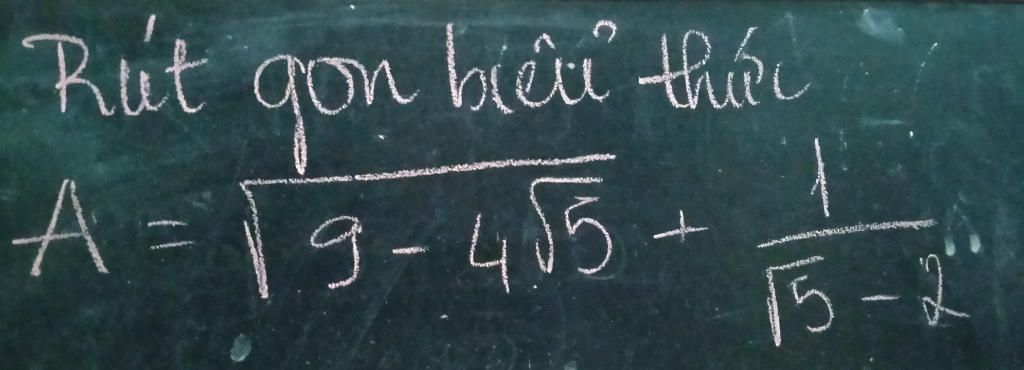 Rút gọn biểu thức
A = √(9 - 4√5) + 1/(√5 - 2)